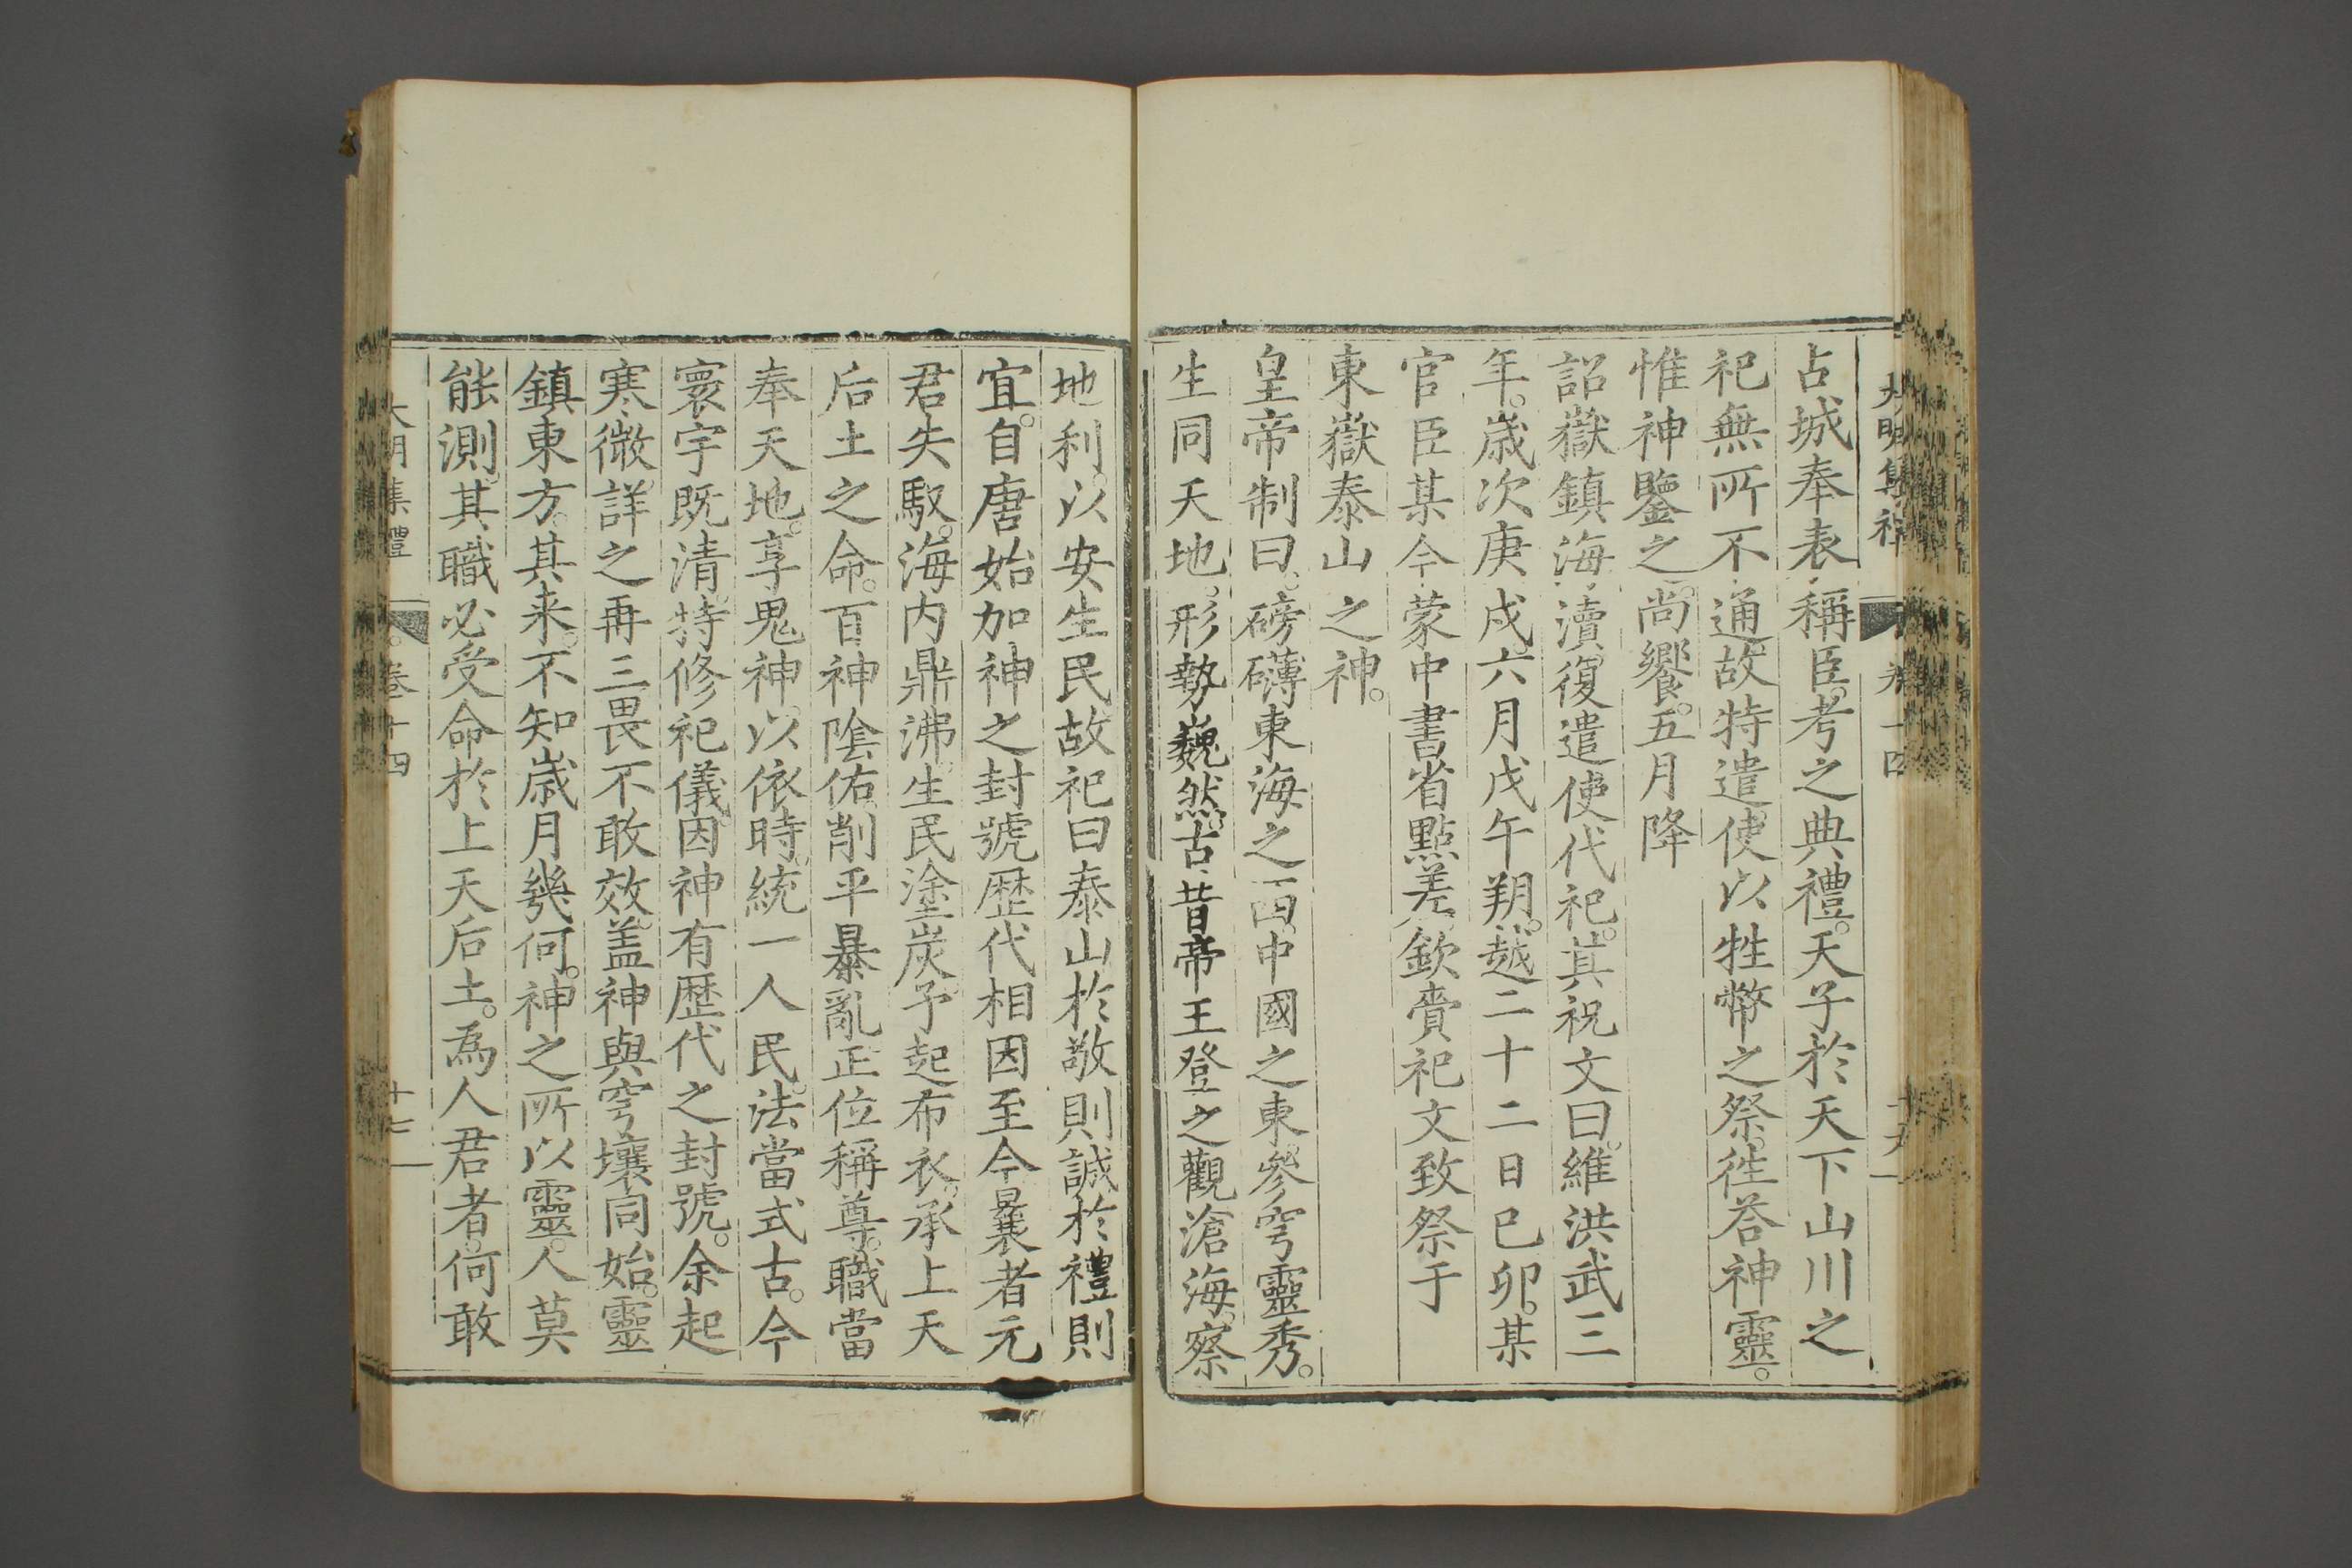 大明集禮 卷十四
占城奉表稱臣。考之典禮。天子於天下山川之
祀無所不通。故特遣使以牲幣之祭。徃荅神靈。
惟神鑒之。尚饗。五月降
詔嶽鎮海瀆。復遣使代祀。其祝文曰。維洪武三
年。歲次庚戌。六月戊午朔。越二十二日己卯。某
官臣某今蒙中書省點差。欽賫祀文致祭于
東嶽泰山之神。
皇帝制曰。磅礴東海之西。中國之東。參穹靈秀。
生同天地。形勢巍然。古昔帝王登之觀滄海。察
地利。以安生民故祀曰泰山於敬則誠於禮則
宜。自唐始加神之封號歷代相因至今曩者元
君失馭。海內鼎沸。生民塗炭。予起布衣。承上天
后土之命。百神陰佑。削平暴亂。正位稱尊。職當
奉天地。享鬼神。以依時。統一人民。法當式古。今
寰宇既清。特修祀儀。因神有歷代之封號。余起
寒微。詳之再三。畏不敢效。盖神與穹壤同始。靈
鎮東方。其来。不知歲月幾何。神之所以靈。人莫
能測。其職必受命於上天后土。為人君者。何敢
大明集禮 卷十四 十七